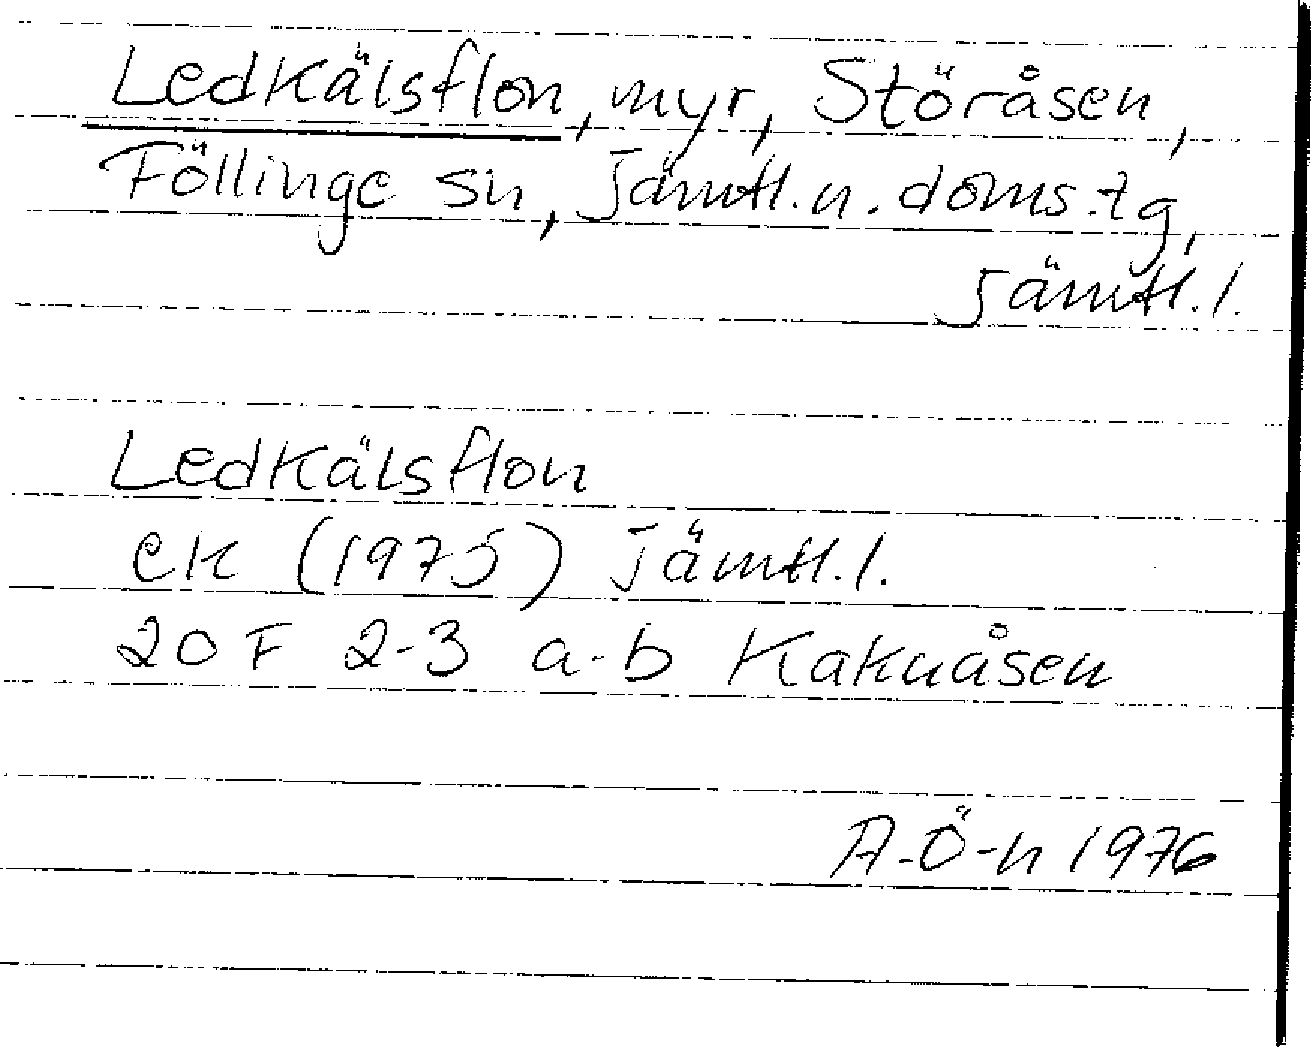 Ledkälsflon, myr, Störåsen,
Föllinge sn, Jämtl. n. doms.tg,
Jämtl. l.
Ledkälsflon
ek (1975) Jämtl. l.
20 F 2-3 a-b Kaknåsen
A-Ö-n 1976